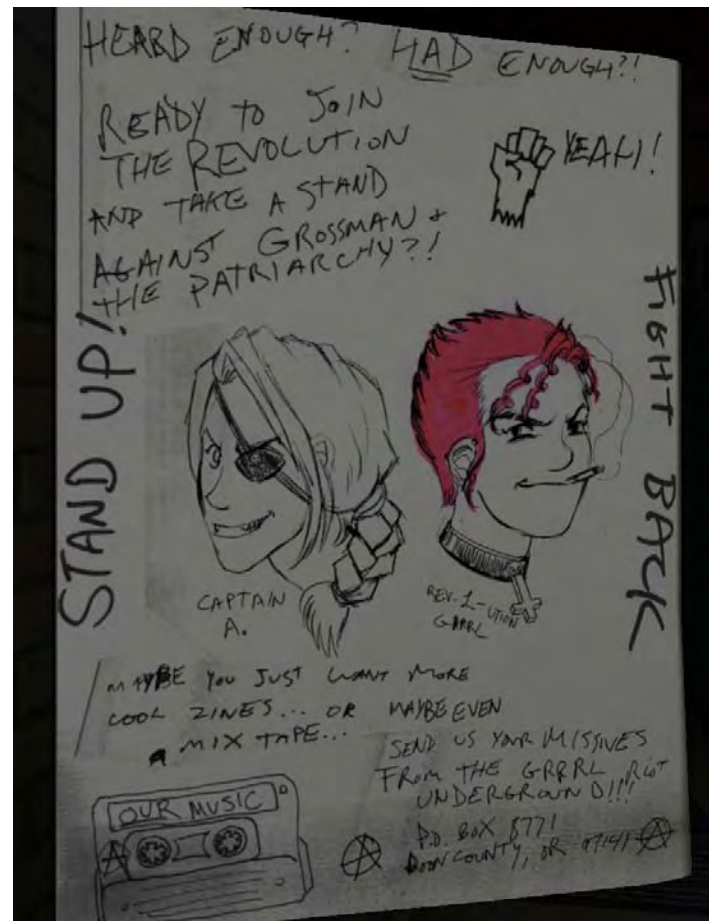 HEARD ENOUGH? HAD ENOUGH?!
READY TO JOIN
THE REVOLUTION
AND TAKE A STAND
AGAINST GROSSMAN &
THE PATRIARCHY?!
YEAH!
STAND UP!
FIGHT BACK
CAPTAIN
A.
REV-L-UTION
GRRL
MAYBE YOU JUST WANT MORE
COOL ZINES... OR MAYBE EVEN
A MIX TAPE...
SEND US YOUR MISSIVES
FROM THE GRRRL RIOT
UNDERGROUND!!!
P.O. BOX 8771
BOON COUNTY, OR 97141
OUR MUSIC
A